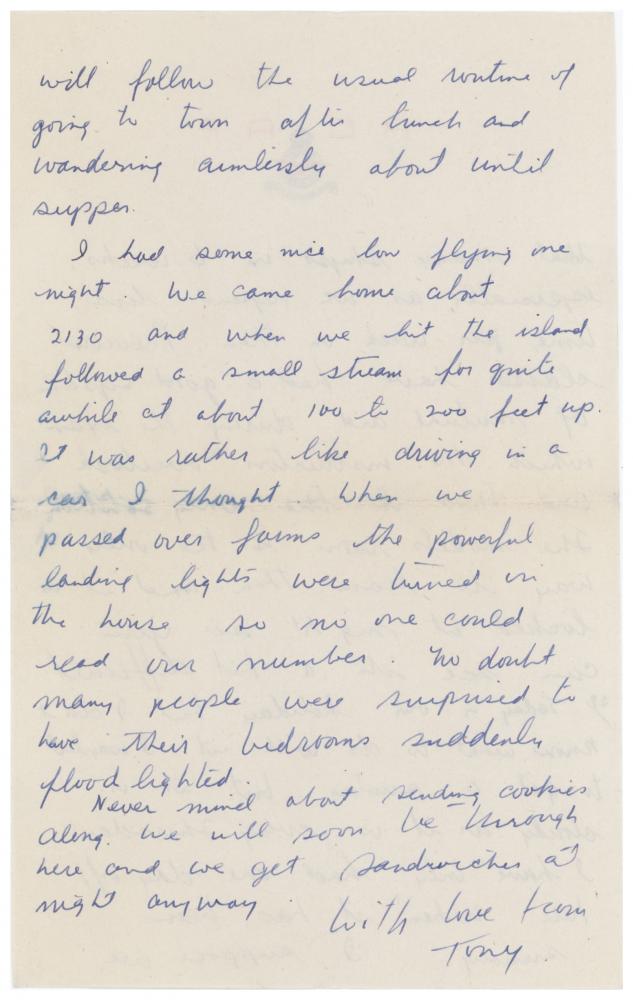 will follow the usual routine of
going to town after lunch and
wandering aimlessly about until
supper.
I had some nice low flying one
night. We came home about
2130 and when we hit the island
followed a small stream for quite
awhile at about 100 to 200 feet up.
It was rather like driving in a
car I thought. When we
passed over farms the powerful
landing lights were turned on
the house so no one could
read our number. No doubt
many people were surprised to
have their bedrooms suddenly
flood lighted.
Never mind about sending cookies
along. We will soon be through
here and we get sandwiches at
night anyway.
With love from
Tony.